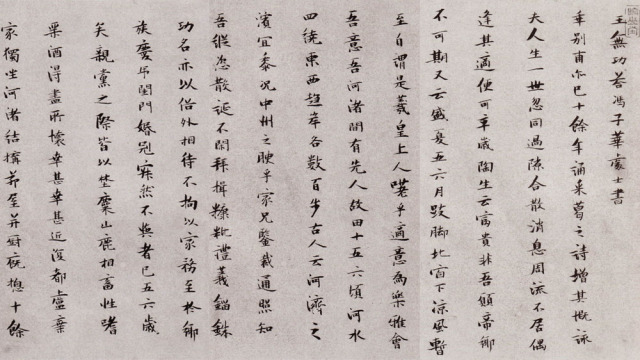 王無功荅馮子華處士書
乖別甫爾已十餘年誦采葛之詩增其慨詠
夫人生一世忽同過隙合散消息周流不居偶
逢其適便可卒歲陶生云富貴非吾願帝鄉
不可期又云盛夏五六月跂脚北窗下涼風暫
至自謂是羲皇上人嗟乎適意為樂雅會
吾意吾河渚間有先人故田十五六頃河水
四繞東西趍岸各數百步古人云河濟之
濱宜黍况中州之腴乎家兄鑒裁通照知
吾縱恣散誕不閑拜揖糠粃禮義錙銖
功名亦以俗外相待不拘以家務至於鄉
族慶弔閨門婚冠寂然不與者已五六歲
矣親黨之際皆以埜麋山鹿相畜性嗜
琹酒得盡所懷幸甚幸甚近復都盧棄
家獨坐河渚結構茆并厨總十餘